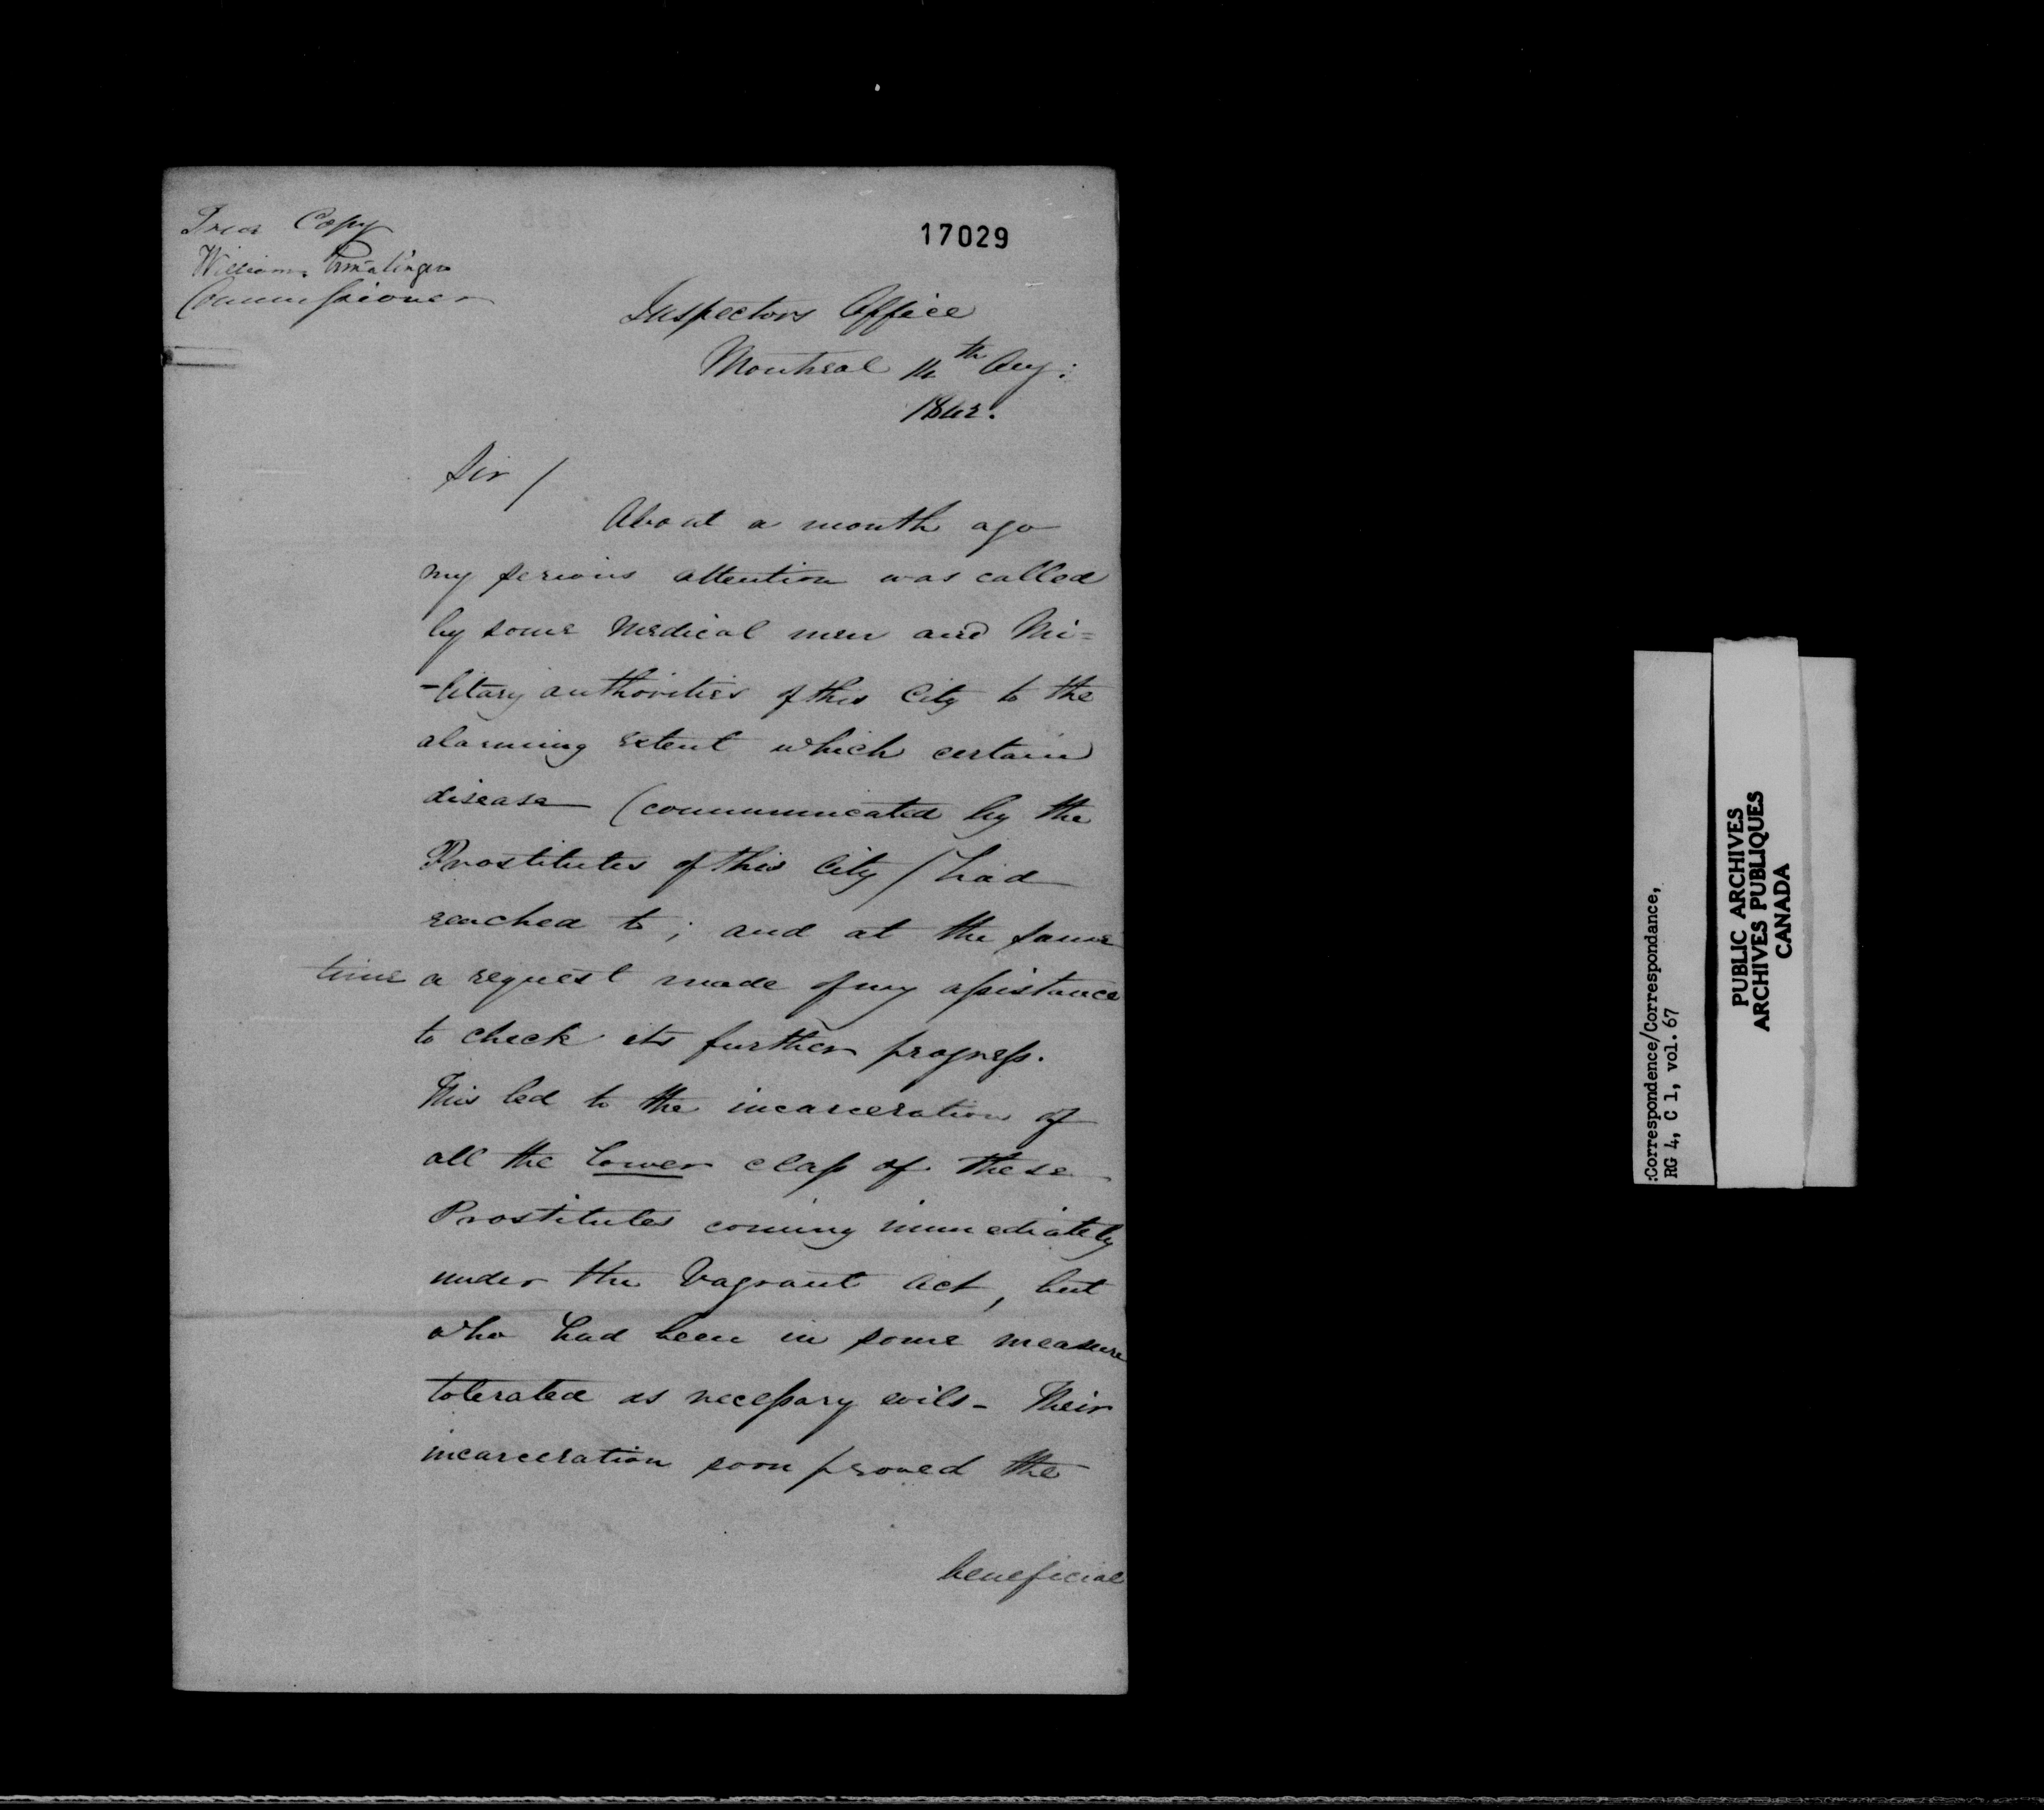 True Copy
William Ermatinger
Commissioner
17029
Inspectors Office
Montreal 14th Aug:
1842.
Sir /
About a month ago
my serious attention was called
by some Medical men and Mi=
-litary authorities of this City to the
alarming extent which certain
disease (communicated by the
Prostitutes of this City / had
reached to; and at the same
time a request made of my assistance
to check its further progress.
This led to the incarceration of
all the lower class of these
Prostitutes coming immediately
under the Vagrant Act, but
who had been in some measure
tolerated as necessary evils - Their
incarceration soon proved the
beneficial
:Correspondence/Correspondance,
RG 4, C 1, vol. 67
PUBLIC ARCHIVES
ARCHIVES PUBLIQUES
CANADA